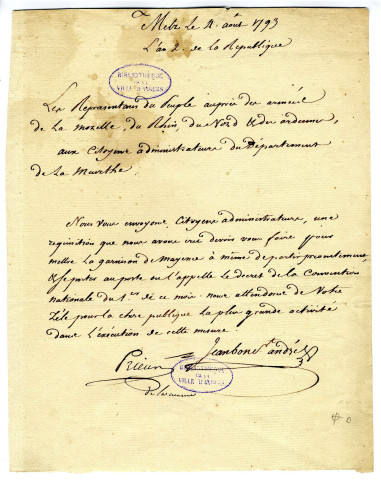 Metz le 4 août 1793
L'an 2. de la République
BIBLIOTHEQUE
DE LA
VILLE D'AMIENS
Les Représentans du Peuple auprès des armées
de la Mozelle, du Rhin, du Nord & des ardennes,
aux Citoyens administrateurs du Département
de La Murthe.
Nous vous envoyons, Citoyens administrateurs, une
requisition que nous avons cru devoir vous faire pour
mettre la garnison de Mayence à même de partir promtement,
& se porter au poste ou l'appelle le décret de la Convention
nationale du 1er de ce mois. nous attendons de Votre
Zèle pour la chose publique la plus grande activité
dans l'exécution de cette mesure
Prieur Jeanbon St andré
BIBLIOTHEQUE
DE LA
VILLE D'AMIENS
de la marne